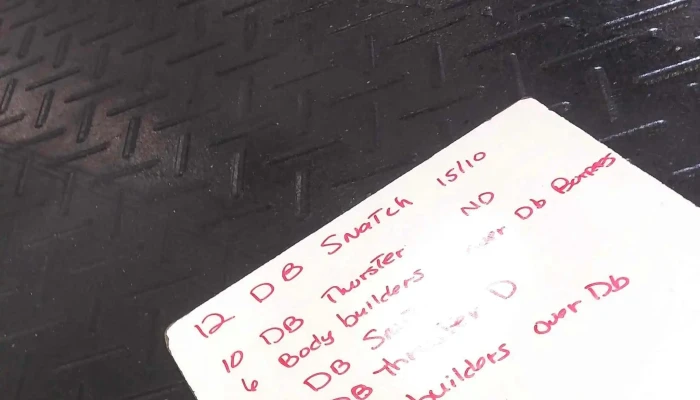 12 DB SnaTch 15/10
10 DB Thurster ND
6 Body builders over Db Burpees
DB
DB thruster D
builders over Db